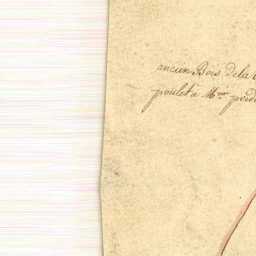 ancien Bois de la
poulet à Mme